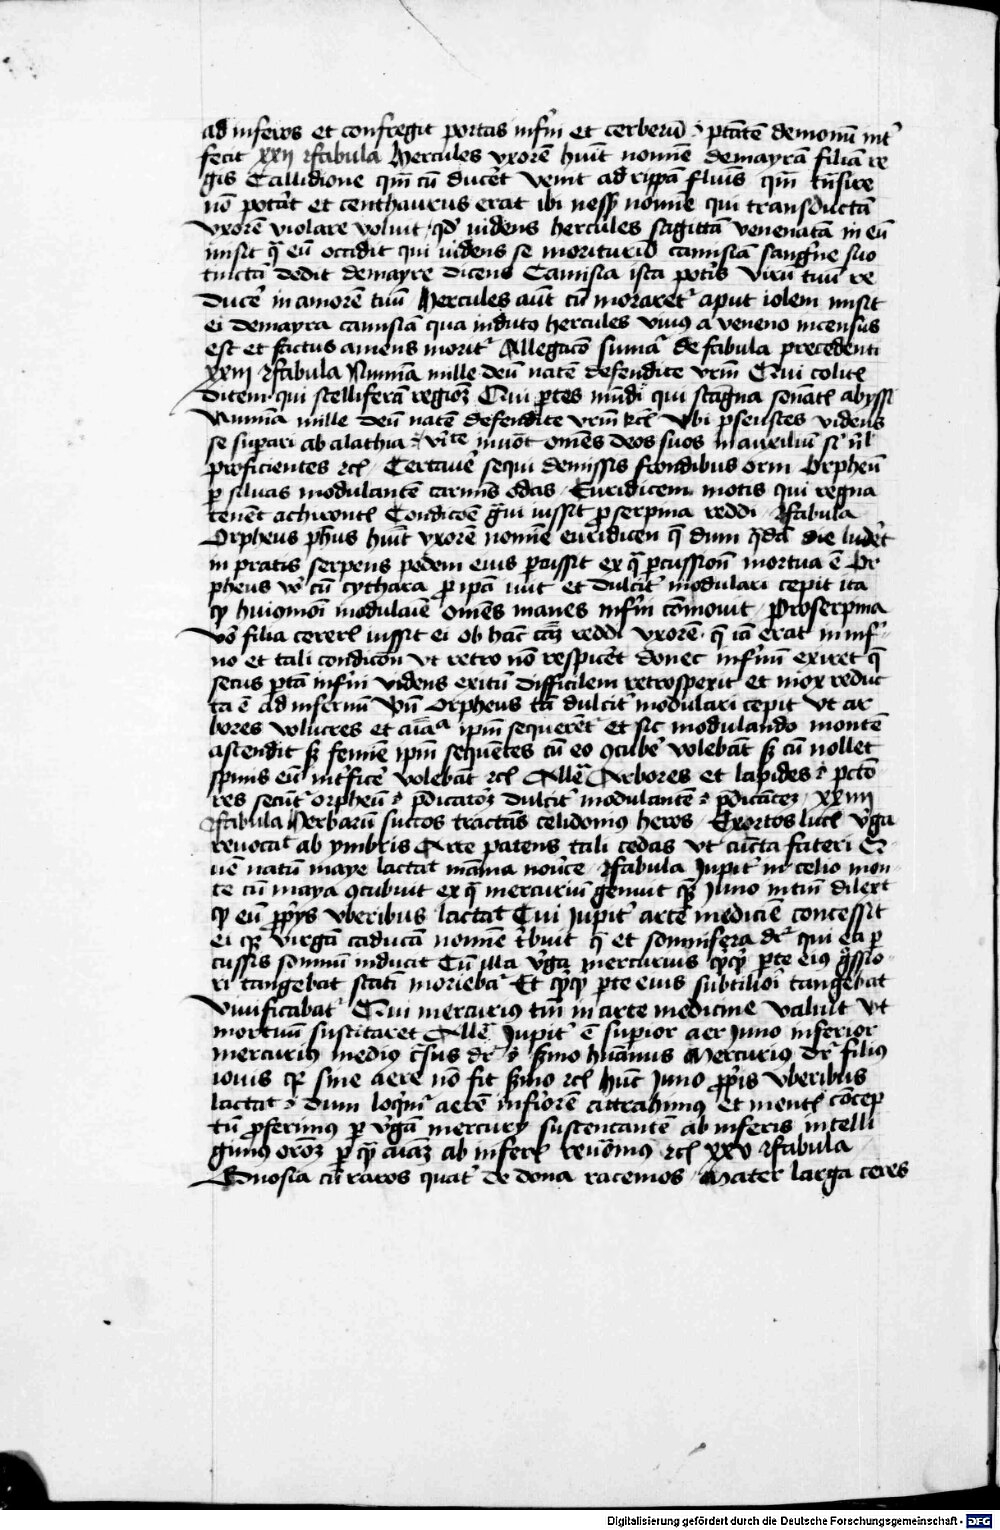 ad inferos et confregit portas infrni et cerberū .i. ptātē demonū int
fecit xxii fabula Hercules vxorē huit nomine demayrā filiā re
gis Callidione qm̄ cū ducēt venit ad rippā fluuis qm̄ tn̄sire
nō potāt et centhaurus erat ibi nessꝰ nomīe qui transductā
vxorē violare voluit qd videns hercules sagittā venenatā in eū
misit q̄ eū occidit qui videns se moriturū camisiā sangne suo
tinctā dedit demayre dicens Camisia ista potis virū tuū re
ducē in amorē tuū Hercules aūt cū moraret aput iolem misit
ei demayra camisiā qua induto hercules vivus a veneno incensus
est et factus amens morit Allegacō sumā de fabula precedenti
xxiii fabula Numīa mille deū natē defendite vrm̄ Qui colit
ditem qui stelliferā regioꝫ Qui ptes mūdi qui stagna sonāt abyssi
Numīa mille deū natē defendite vrm̄ Vbi pseustes videns
se supari ab alathia invōt omēs deos suos in auxiliū
proficientes Certavē sequi demissis frondibus orni Orpheū
p silvas modulantē carmīs odas Euridicem motis qui regna
tenēt achiront Condicōe iussit pserpina reddi fabula
Orpheus phūs huit vxorē nomīe euridicen q̄ dum die ludēt
in pratis serpens pedem eius pcussit ex q̄ pcussionē mortua ē Or
pheus cū cythara p ipā ivit et dulcit modulari cepit ita
modulaiē omēs manes infrni cōmovit Proserpina
vō filia cerer iussit ei ob hāc reddi vxorē q̄ iā erat in inf
no et tali condicōn vt retro nō respicēt donec infnū exiret q̄
secus ptā infrni videns exitū difficilem retrospexit et mox reduc
ta ē ad infernū Orpheus tā dulcit modulari cepit vt ar
bores volucres et aīa ipm̄ sequerēt et sic modulando montē
ascendit femīe ipm̄ sequētes cū eo ꝯcubē volebāt cū nollet
spinis eū intficē volebāt Arbores et lapides .i. pctō
res secūt orpheū .i. pdicatoꝫ dulcit modulantē .i. pdicātē xxiiii
fabula Herbarū succos tractās celidonius heros Exortos luct vga
reuocat ab vmbris Arte patens tali cedas vt cūcta fateri
natū maye lactat māma nouce fabula Jupit in celio mon
te cū maya ꝯcubuit ex q̄ mercuriū genuit Juno intm̄ dilexit
eū pprys vberibus lactat Cui Jupit artē mediciē concessit
ei virgā caducā nomīe tbuit q̄ et somnifera dr qui
cussis somnū inducit Cū illa vga mercurius pte eiꝰ gssio
ri tangebat statī moriebat Et pte eius subtiliori tangebat
viuificabat Qui mercurius tm̄ in arte medicine valuit vt
mortuū suscitaret Jupit ē supior aer Juno inferior
mercuriꝰ mediꝰ dr .i. smo huānus Mercuriꝰ dr filiꝰ
iouis sine aere nō fit smo Hūc Juno ppis vberibus
lactat .i. dum loqimr aerē infiorē attrahimꝰ et ment cōcep
tū proferimus p vgā mercury suscitantē ab inferis intelli
gimus p aīaꝫ ab infer xxv fabula
Gnosia cū raros quat de dona racemos Mater larga ceres
Digitalisierung gefördert durch die Deutsche Forschungsgemeinschaft - DFG